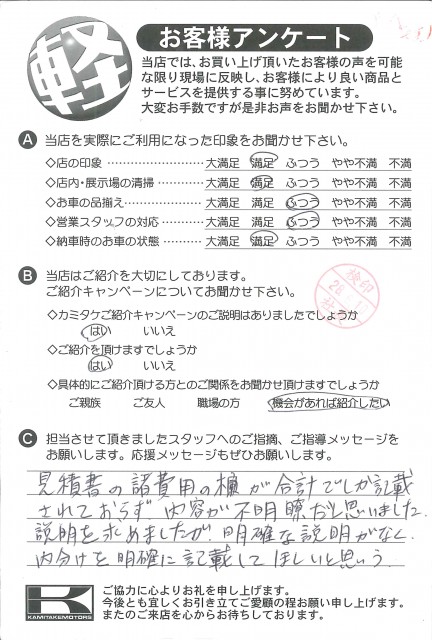 軽
お客様アンケート
当店では、お買い上げ頂いたお客様の声を可能
な限り現場に反映し、お客様により良い商品と
サービスを提供する事に努めています。
大変お手数ですが是非お声をお聞かせ下さい。
A 当店を実際にご利用になった印象をお聞かせ下さい。
◇店の印象 大満足 満足 ふつう やや不満 不満
◇店内・展示場の清掃 大満足 満足 ふつう やや不満 不満
◇お車の品揃え 大満足 満足 ふつう やや不満 不満
◇営業スタッフの対応 大満足 満足 ふつう やや不満 不満
◇納車時のお車の状態 大満足 満足 ふつう やや不満 不満
B 当店はご紹介を大切にしております。
ご紹介キャンペーンについてお聞かせ下さい。
検印
◇カミタケご紹介キャンペーンのご説明はありましたでしょうか
はい いいえ
◇ご紹介を頂けますでしょうか
はい いいえ
◇具体的にご紹介頂ける方とのご関係をお聞かせ頂けますでしょうか
ご親族 ご友人 職場の方 機会があれば紹介したい
C 担当させて頂きましたスタッフへのご指摘、ご指導メッセージを
お願いします。応援メッセージもぜひお願いします。
見積書の諸費用の欄が合計でしか記載
されておらず内容が不明瞭だと思いました。
説明を求めましたが、明確な説明がなく、
内分けを明確に記載してほしいと思う。
K
KAMITAKEMOTORS
ご協力に心よりお礼を申し上げます。
今後とも宜しくお引き立てご愛顧の程お願い申し上げます。
またのご来店を心からお待ちしております。